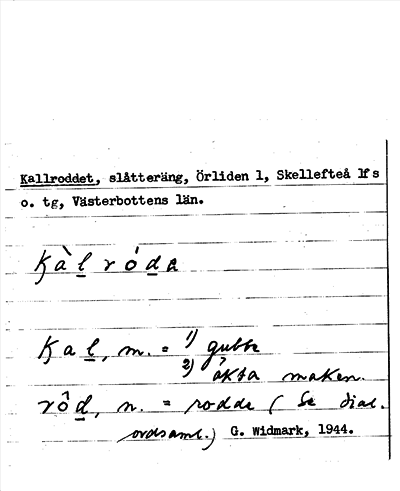 Kallroddet, slåtteräng, Örliden 1, Skellefteå lfs
o. tg, Västerbottens län.
Kàl róda
Kal, m. = 1) gubbe
2) äkta maken.
rôd, n. = rodde (Se dial.
ordsaml.) G. Widmark, 1944.